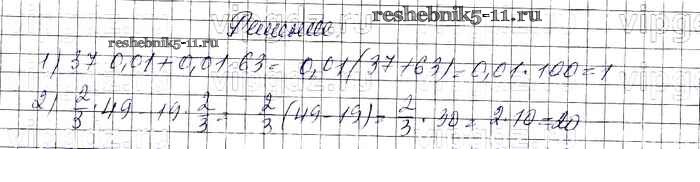 reshebnik5-11.ru
Решение
reshebnik5-11.ru
1) 37 · 0,01 + 0,01 · 63 = 0,01(37+63) = 0,01 · 100 = 1
2) 2/3 · 49 - 19 · 2/3 = 2/3 (49 - 19) = 2/3 · 30 = 2 · 10 = 20